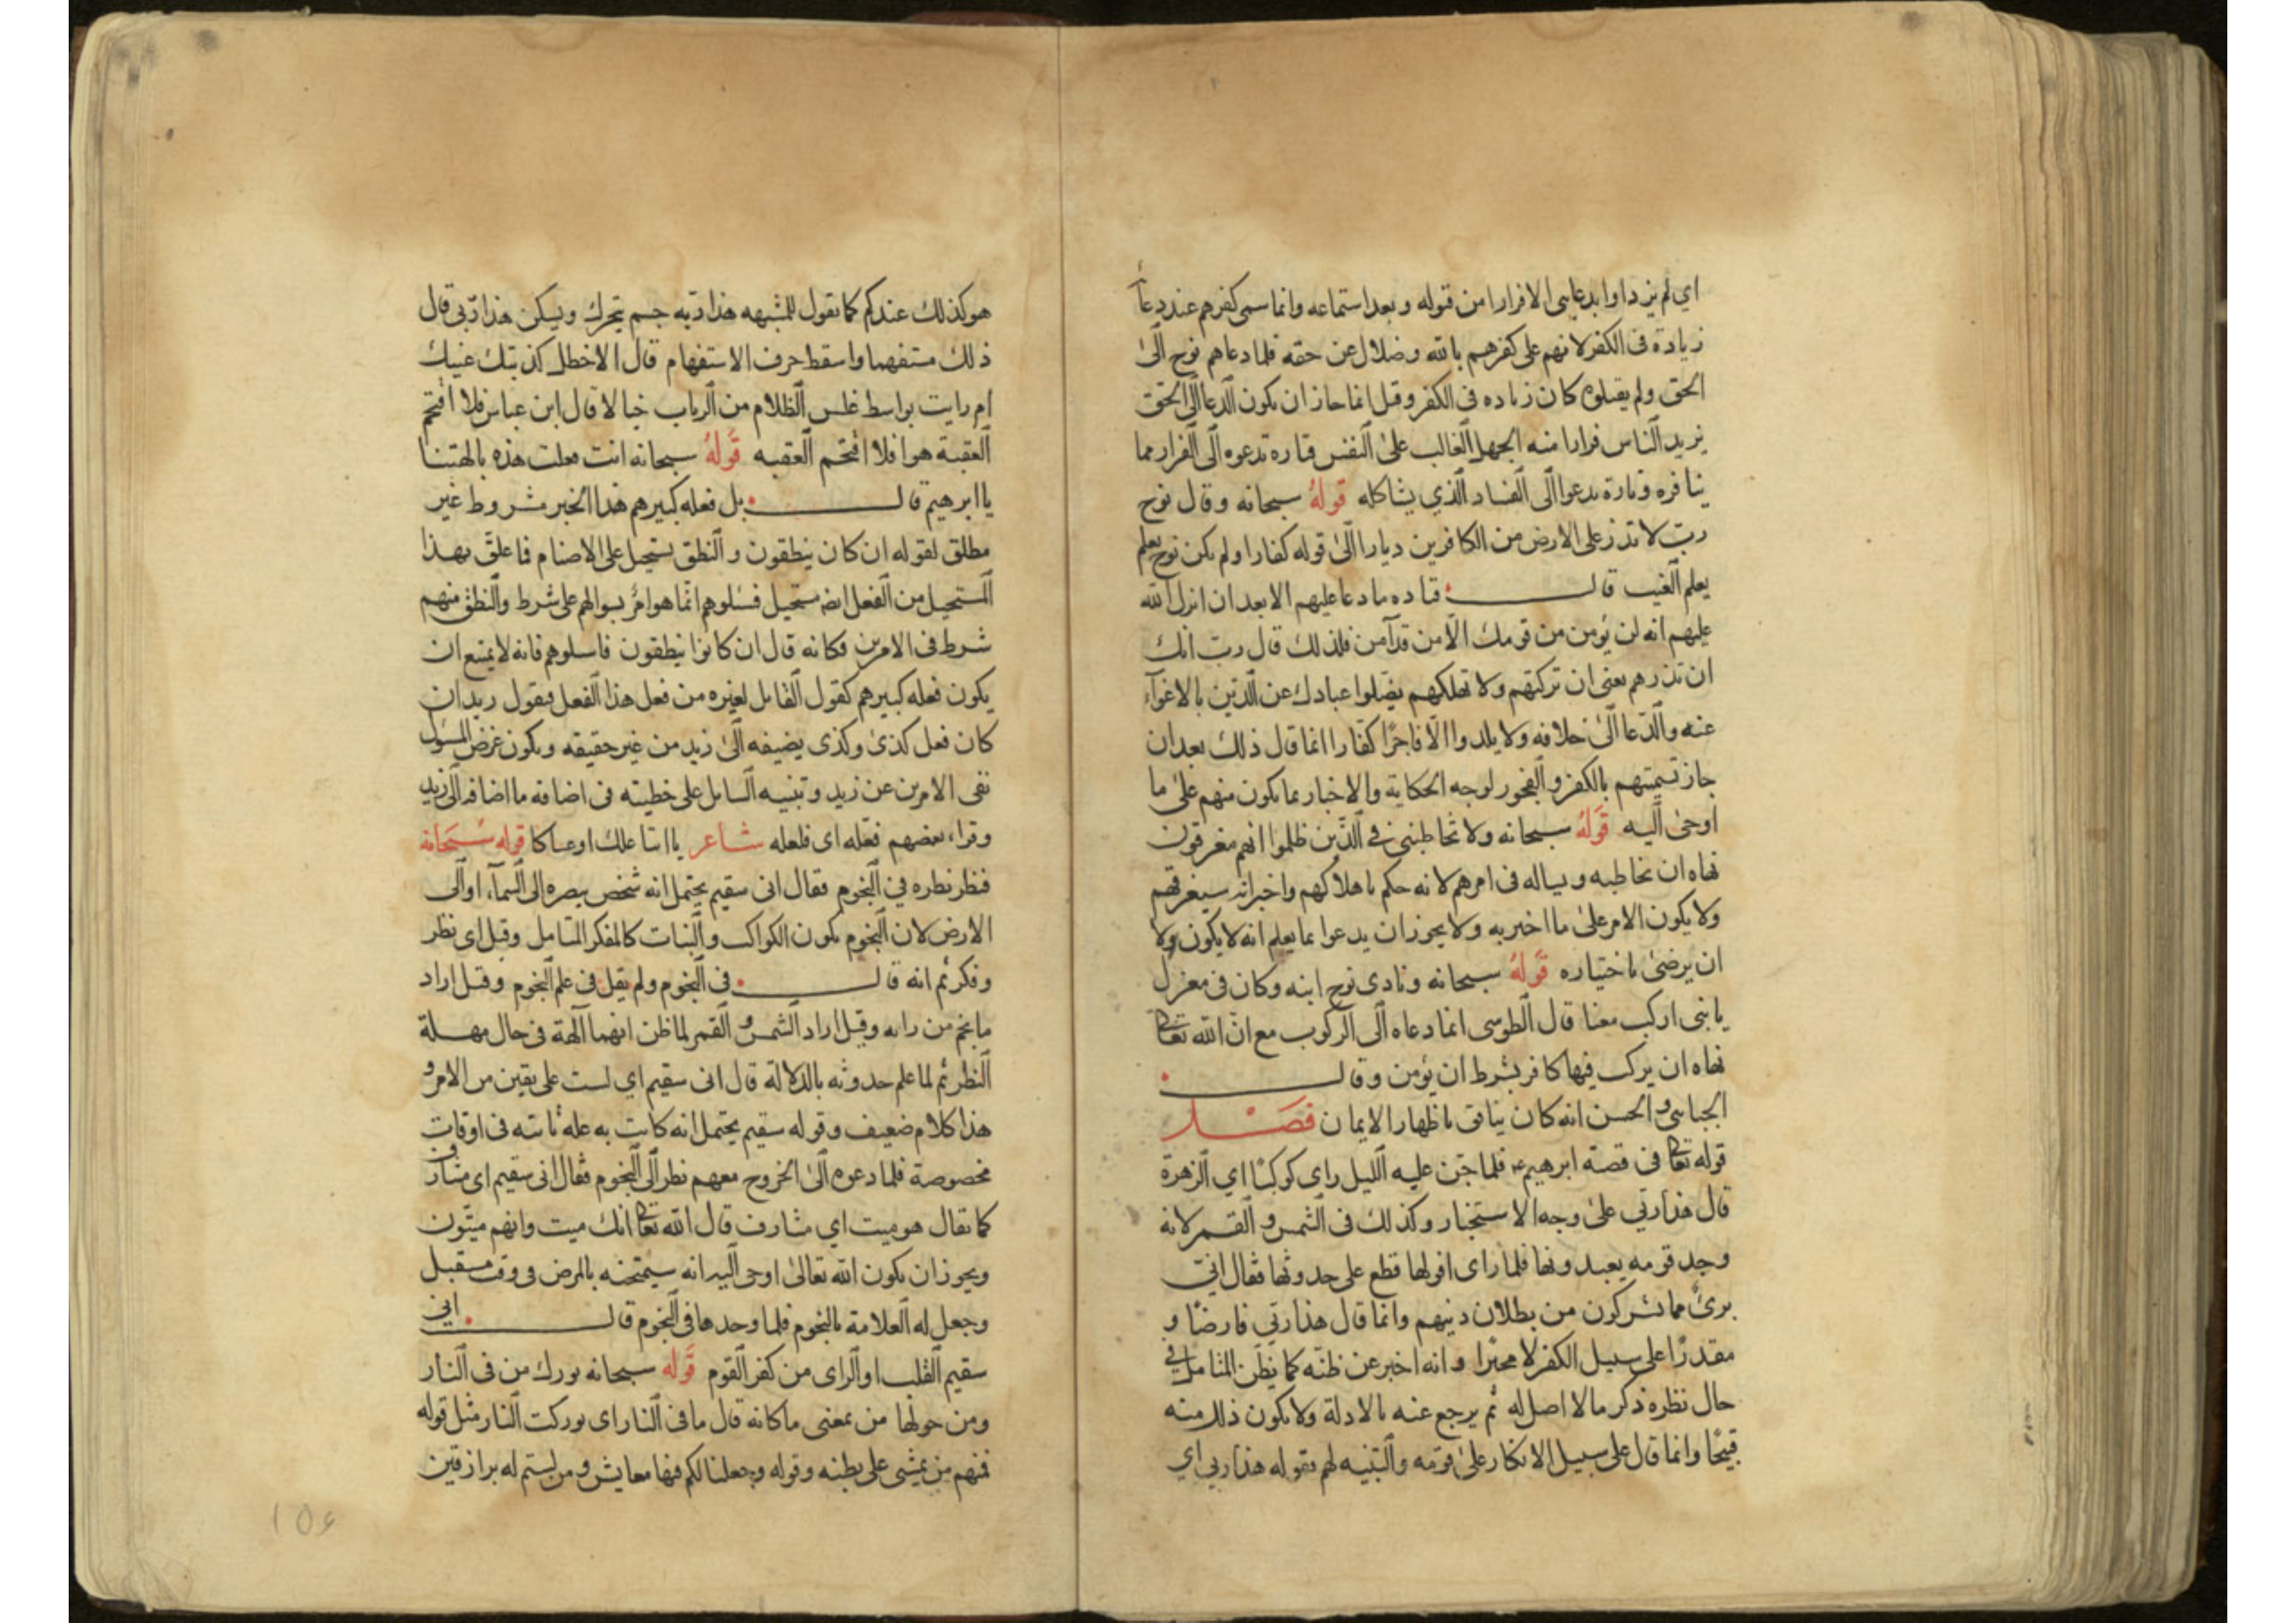 اي لم يزدادوا بدعايى الا فرارا من قوله وبعد استماعه وانما سمى كفرهم عند دعآ
زيادة فى الكفر لانهم على كفرهم بالله وضلال عن حقه فلما دعاهم نوح الى
الحق ولم يقبلوه كان زياده فى الكفر وقيل انما جاز ان يكون الدعا الى الحق
يزيد الناس فرارا منه الجهل الغالب على النفس فتارة تدعوه الى الفرار مما
ينافره وتارة يدعوا الى الفساد الذي يشاكله قوله سبحانه وقال نوح
رب لا تذر على الارض من الكافرين ديارا الى قوله كفارا ولم يكن نوح يعلم
يعلم الغيب قال قتاده ما دعا عليهم الا بعد ان انزل الله
عليهم انه لن يؤمن من قومك الا من قد آمن فلذلك قال رب انك
ان تذرهم يعنى ان تركتهم ولا تهلكهم يضلوا عبادك عن الدين بالاغوآء
عنه والدعا الى خلافه ولا يلدوا الا فاجرا كفارا انما قال ذلك بعد ان
جاز تسميتهم بالكفر والفجور لوجه الحكاية والاخبار بما يكون منهم على ما
اوحى اليه قوله سبحانه ولا تخاطبنى في الذين ظلموا انهم مغرقون
نهاه ان يخاطبه ويساله فى امرهم لانه حكم باهلاكهم واخبرانه سيغرقهم
ولا يكون الامر على ما اخبر به ولا يجوز ان يدعوا بما يعلم انه لا يكون ولا
ان يرضى باختياره قوله سبحانه ونادى نوح ابنه وكان فى معزل
يا بنى اركب معنا قال الطوسى انما دعاه الى الركوب مع ان الله تعالى
نهاه ان يركب فيها كافر بشرط ان يؤمن وقال
الجبايى والحسن انه كان ينافق باظهار الايمان فصل
قوله تعالى فى قصة ابرهيم ع فلما جن عليه الليل راى كوكبا اي الزهرة
قال هذا ربي على وجه الاستخبار وكذلك فى الشمس والقمر لانه
وجد قومه يعبدونها فلما راى افولها قطع على حدوثها فقال انى
برئ مما تشركون من بطلان دينهم وانما قال هذا ربي فارضا و
مقدرا على سبيل الكفر لا مخبرا وانه اخبر عن ظنه كما يظن المتامل في
حال نظره ذكر ما لا اصل له ثم يرجع عنه بالادلة ولا يكون ذلك منه
قبيحا وانما قال على سبيل الانكار على قومه والتنبيه لهم بقوله هذا ربي اي
هو كذلك عندكم كما تقول للمشبهه هذا ربه جسم يتحرك ويسكن هذا ربى قال
ذلك مستفهما واسقط حرف الاستفهام قال الاخطل كذبتك عينك
ام رايت بواسط غلس الظلام من الرباب خيالا قال ابن عباس فلا اقتحم
العقبة هو افلا اقتحم العقبه قوله سبحانه انت فعلت هذه بالهتنا
يا ابرهيم قال بل فعله كبيرهم هذا الخبر مشروط غير
مطلق لقوله ان كان ينطقون والنطق يستحيل على الاصنام فما علق بهذا
المستحيل من الفعل ايضا مستحيل فسلوهم انما هو امر بسوالهم على شرط والنطق منهم
شرط فى الامرين فكانه قال ان كانوا ينطقون فاسلوهم فانه لا يمتنع ان
يكون فعله كبيرهم كقول القايل لغيره من فعل هذا الفعل فيقول زيد ان
كان فعل كذى وكذى يضيفه الى زيد من غير حقيقه ويكون غرض المسول
نفى الامرين عن زيد وتنبيه السايل على خطيته فى اضافة ما اضافه الى زيد
وقراء بعضهم فعله اى فلعله شاعر يا ابتا علك او عساكا قوله سبحانه
فنظر نظره في النجوم فقال انى سقيم يحتمل انه شخص ببصره الى السمآء او الى
الارض لان النجوم يكون الكواكب والنبات كالمفكر المتامل وقيل اى نظر
وفكر ثم انه قال فى النجوم ولم يقل فى علم النجوم وقيل اراد
ما نجم من رايه وقيل اراد الشمس والقمر لما ظن انهما آلهة فى حال مهلة
النظر ثم لما علم حدوثه بالدلالة قال انى سقيم اي لست على يقين من الامر و
هذا كلام ضعيف وقوله سقيم يحتمل انه كانت به عله تاتيه فى اوقات
مخصوصة فلما دعوه الى الخروج معهم نظر الى النجوم فقال انى سقيم اى مشارف
كما يقال هو ميت اي مشارف قال الله تعالى انك ميت وانهم ميتون
ويجوز ان يكون الله تعالى اوحى اليه انه سيمتحنه بالمرض فى وقت مستقبل
وجعل له العلامة بالنجوم فلما وجدها فى النجوم قال انى
سقيم القلب او الراى من كفر القوم قوله سبحانه بورك من فى النار
ومن حولها من بمعنى ما كانه قال ما فى النار اى بوركت النار مثل قوله
فمنهم من يمشى على بطنه وقوله وجعلنا لكم فيها معايش ومن لستم له برازقين